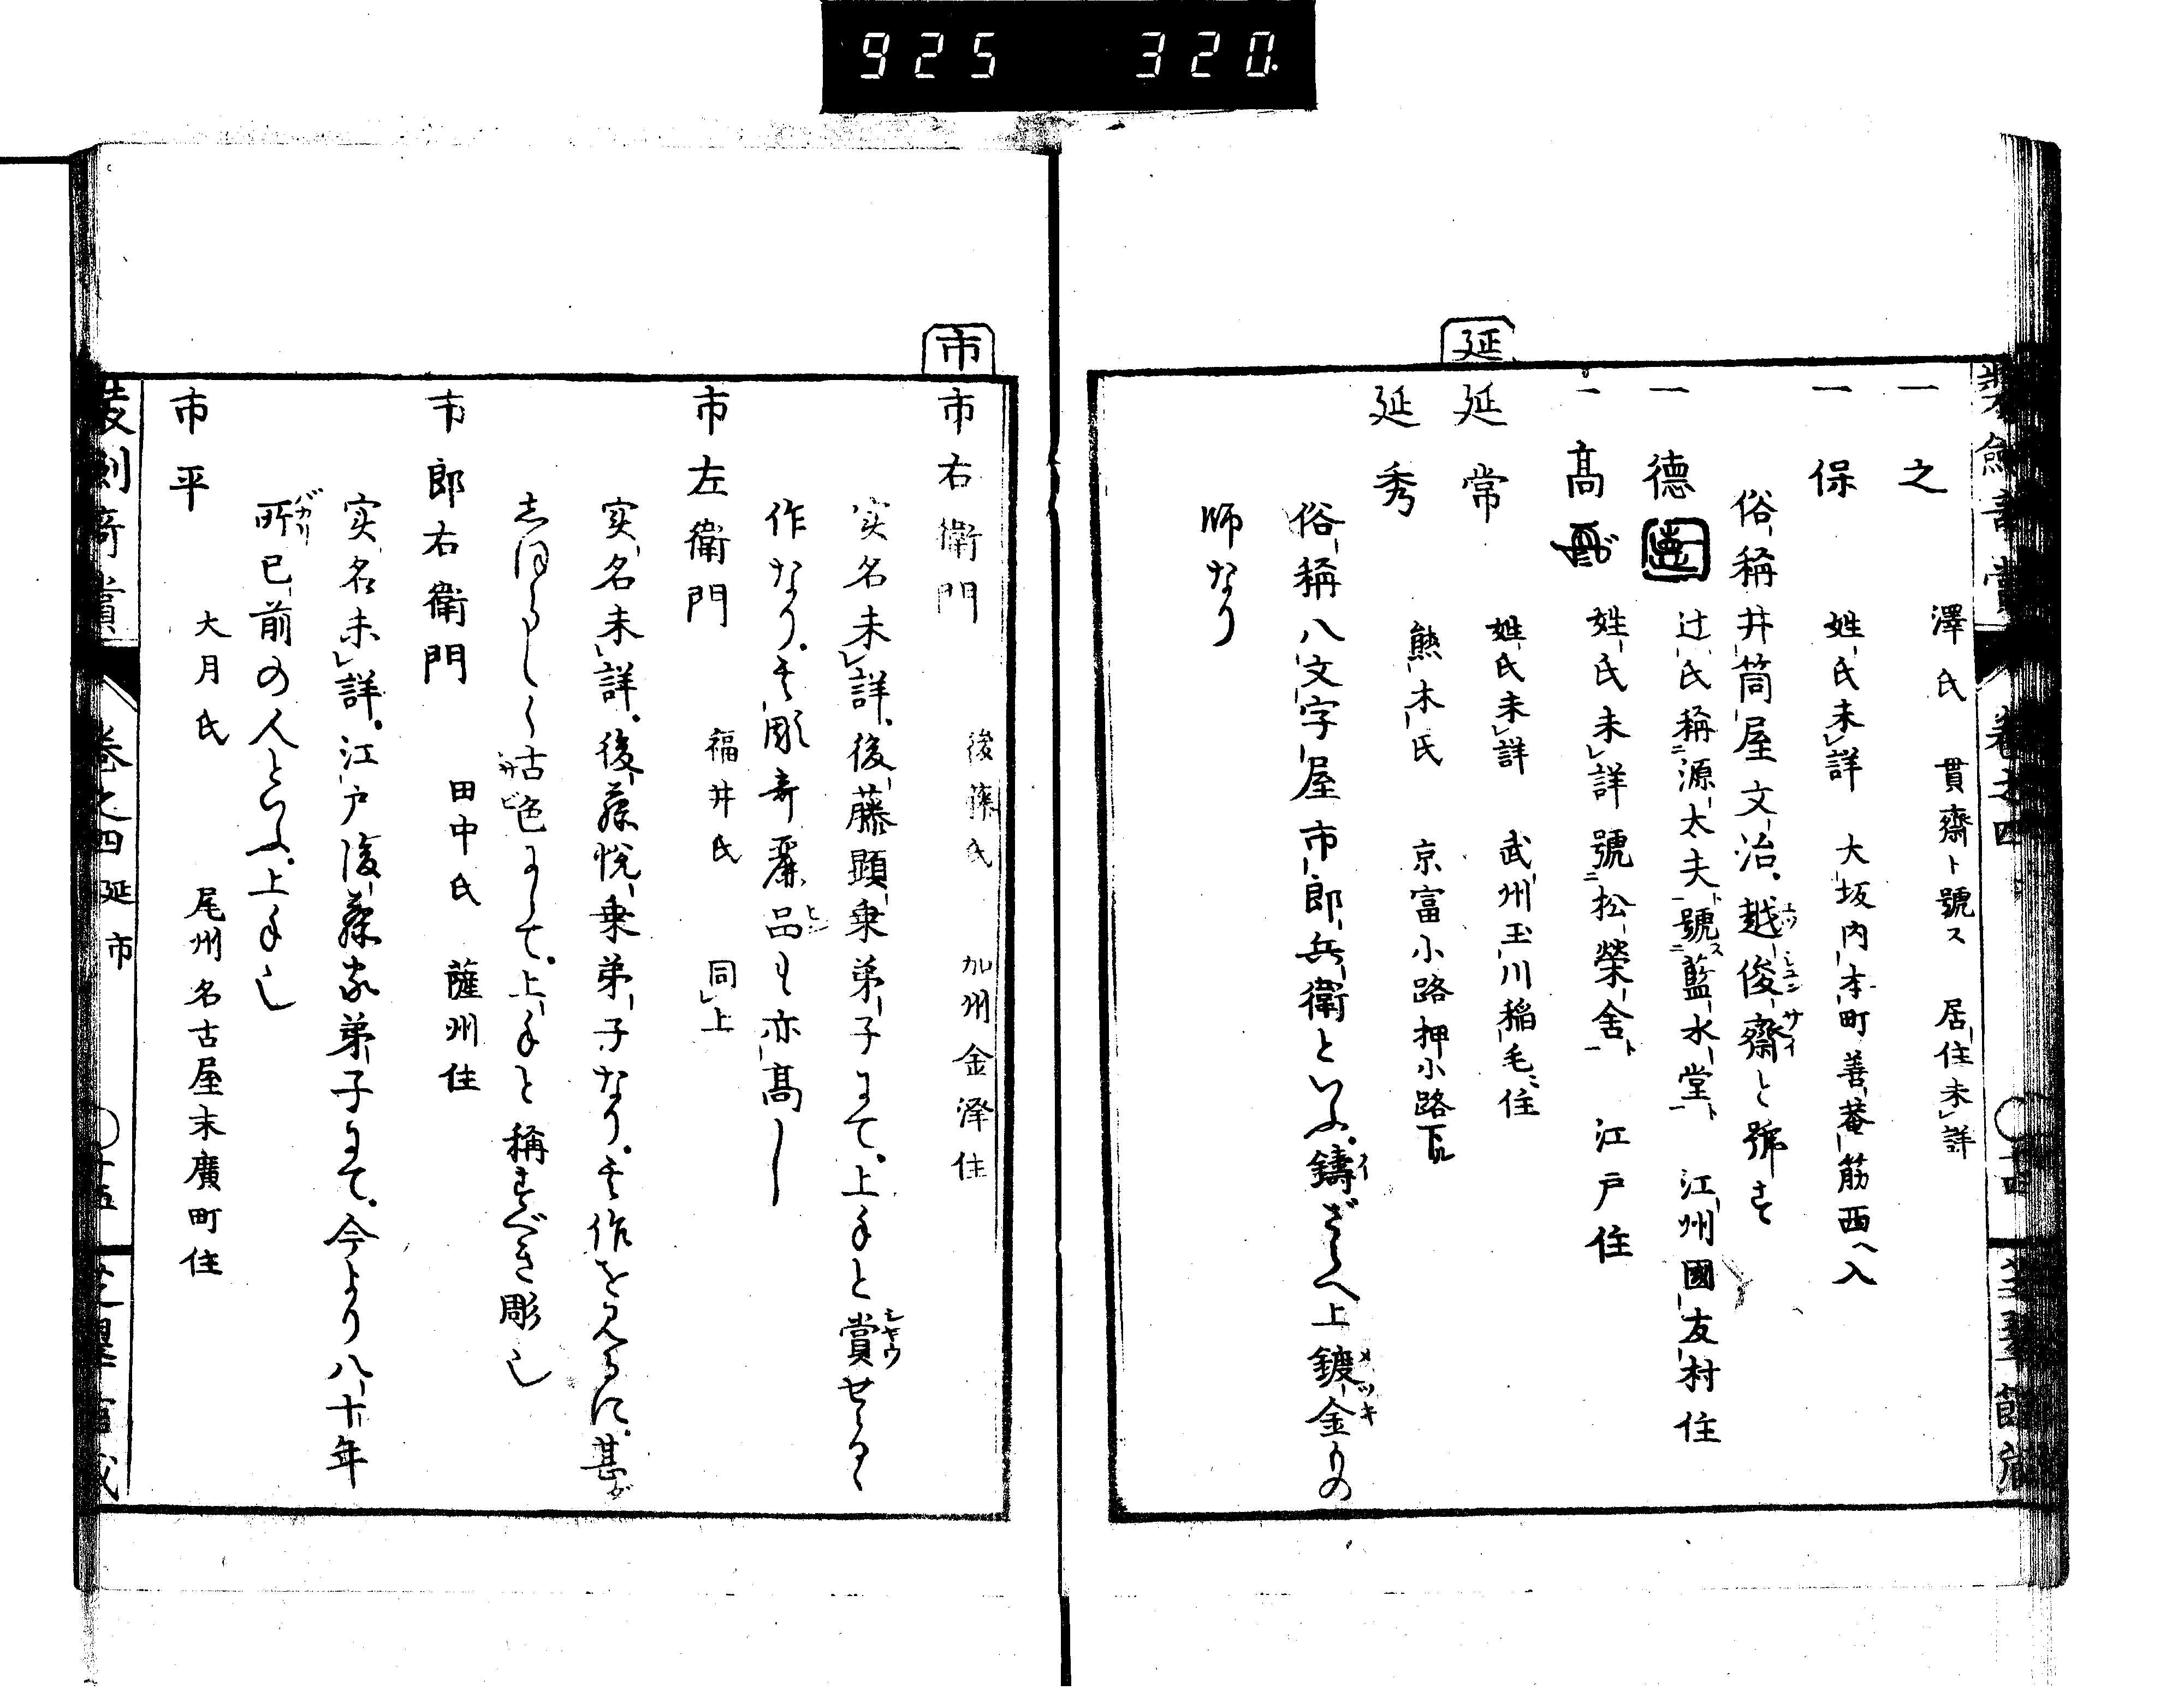 925 320.
一之 澤氏 貫齋ト號ス 居住未レ詳
一保 姓氏未レ詳 大坂内本町善菴筋西ヘ入
俗稱井筒屋文治。越俊齋と號す
一德 辻氏稱二源太夫一號二藍水堂一ト 江州國友村住
一高 姓氏未レ詳號二松榮舍一ト 江戸住
延
延常 姓氏未レ詳 武州玉川稲毛ニ住
延秀 熊木氏 京富小路押小路下ル
俗稱八文字屋市郎兵衛といふ。鑄ざらへ上鍍金もの
師なり
市
市右衛門 後藤氏 加州金澤住
実名未レ詳。後藤顕乗弟子にて。上手と賞せらる
作なり。其彫奇麗品も亦高し
市左衛門 福井氏 同レ上
実名未レ詳。後藤悦乗弟子なり。其作を見るに。甚だ
志ほらしく古色にして。上手と稱すべき彫也
市郎右衛門 田中氏 薩州住
実名未レ詳。江戸後藤家弟子にて。今より八十年
所已前の人といふ。上手也
市平 大月氏 尾州名古屋末廣町住
巻之四 延 市